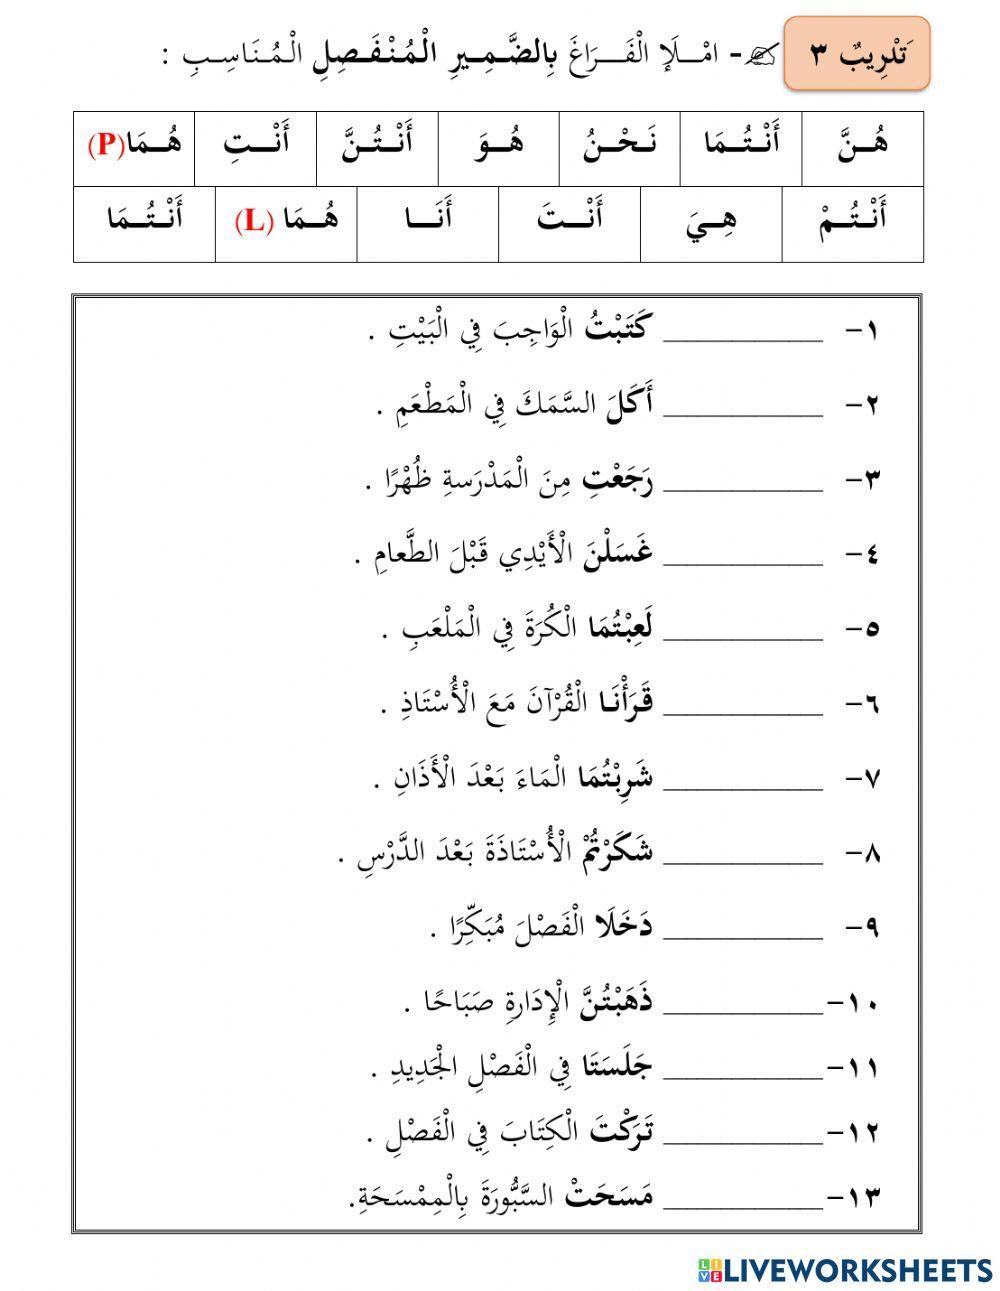 تَدْرِيبٌ ٣ - امْـلَإِ الْفَـــرَاغَ بِالضَّـمِـيرِ الْـمُـنْـفَـصِلِ الْـمُـنَاسِـبِ :
هُــنَّ أَنْـتُــمَا نَـحْـنُ هُــوَ أَنْـتُـنَّ أَنْــتِ هُــمَا(P)
أَنْـتُـمْ هِــيَ أَنْــتَ أَنَــا هُــمَا (L) أَنْـتُـمَا
١- ____________ كَتَبْتُ الْوَاجِبَ فِي الْبَيْتِ .
٢- ____________ أَكَلَ السَّمَكَ فِي الْمَطْعَمِ .
٣- ____________ رَجَعْتِ مِنَ الْمَدْرَسةِ ظُهْرًا .
٤- ____________ غَسَلْنَ الْأَيْدِي قَبْلَ الطَّعامِ .
٥- ____________ لَعِبْتُمَا الْكُرَةَ فِي الْمَلْعَبِ .
٦- ____________ قَرَأْنَا الْقُرْآنَ مَعَ الْأُسْتَاذِ .
٧- ____________ شَرِبْتُمَا الْمَاءَ بَعْدَ الْأَذَانِ .
٨- ____________ شَكَرْتُمْ الْأُسْتَاذَةَ بَعْدَ الدَّرْسِ .
٩- ____________ دَخَلَا الْفَصْلَ مُبَكِّرًا .
١٠-____________ ذَهَبْتُنَّ الْإِدَارةِ صَبَاحًا .
١١-____________ جَلَسَتَا فِي الْفَصْلِ الْجَدِيدِ .
١٢-____________ تَرَكْتَ الْكِتَابَ فِي الْفَصْلِ .
١٣-____________ مَسَحَتْ السَّبُّورَةَ بِالْمِمْسَحَةِ.
LIVE LIVEWORKSHEETS